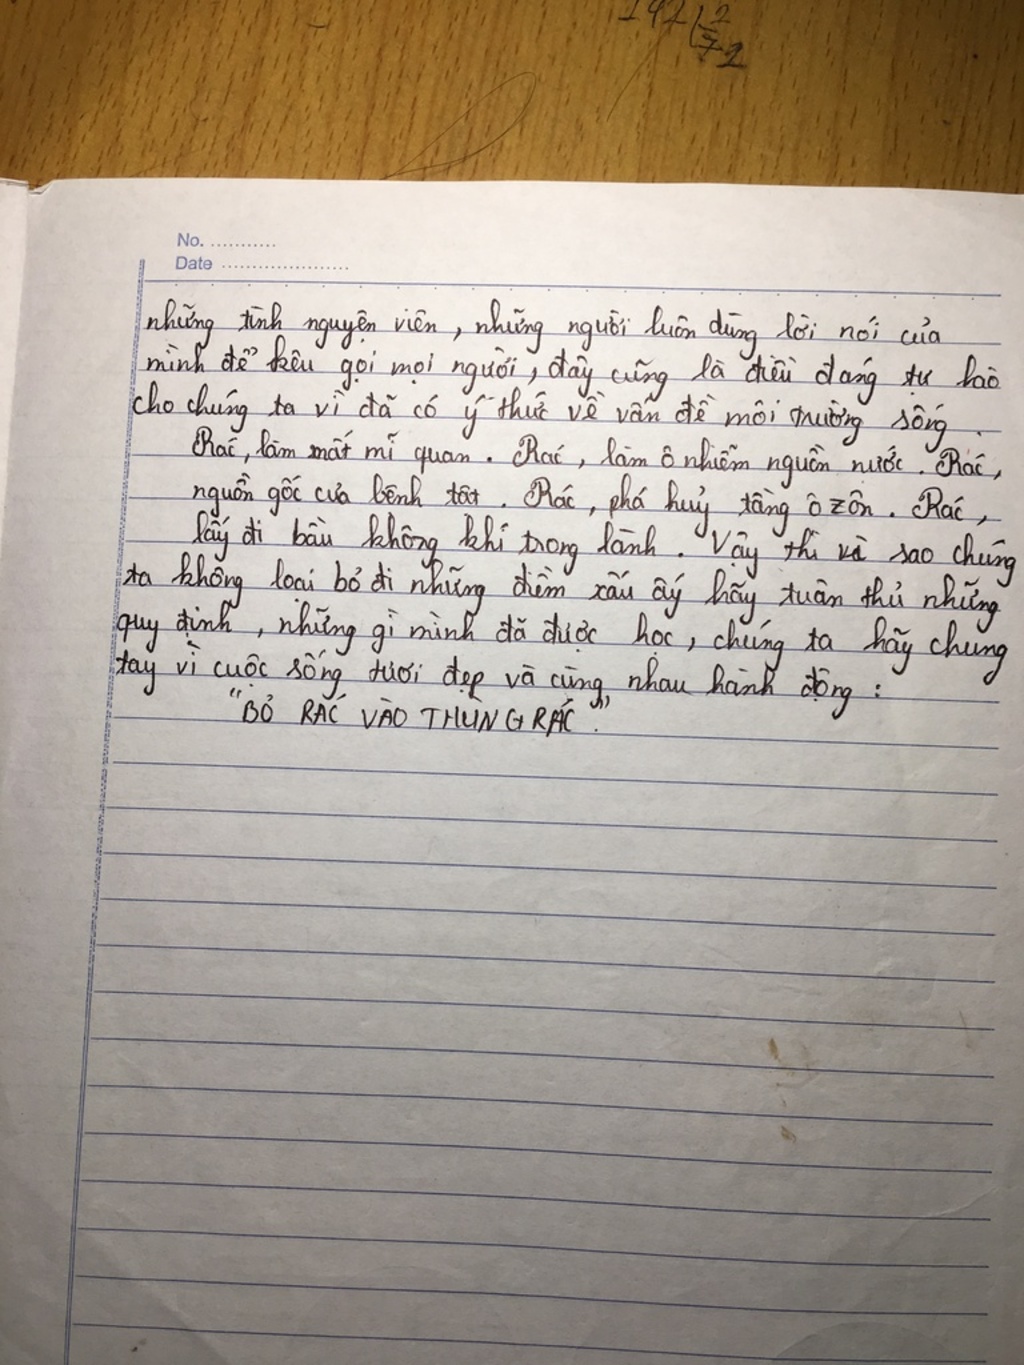 No. ...........
Date .....................
những tình nguyện viên, những người luôn dùng lời nói của
mình để kêu gọi mọi người, đây cũng là điều đáng tự hào
cho chúng ta vì đã có ý thức về vấn đề môi trường sống.
Rác, làm mất mĩ quan. Rác, làm ô nhiễm nguồn nước. Rác,
nguồn gốc của bệnh tật. Rác, phá huỷ tầng ôzôn. Rác,
lấy đi bầu không khí trong lành. Vậy thì vì sao chúng
ta không loại bỏ đi những điểm xấu ấy hãy tuân thủ những
quy định, những gì mình đã được học, chúng ta hãy chung
tay vì cuộc sống tươi đẹp và cùng nhau hành động:
"BỎ RÁC VÀO THÙNG RÁC".